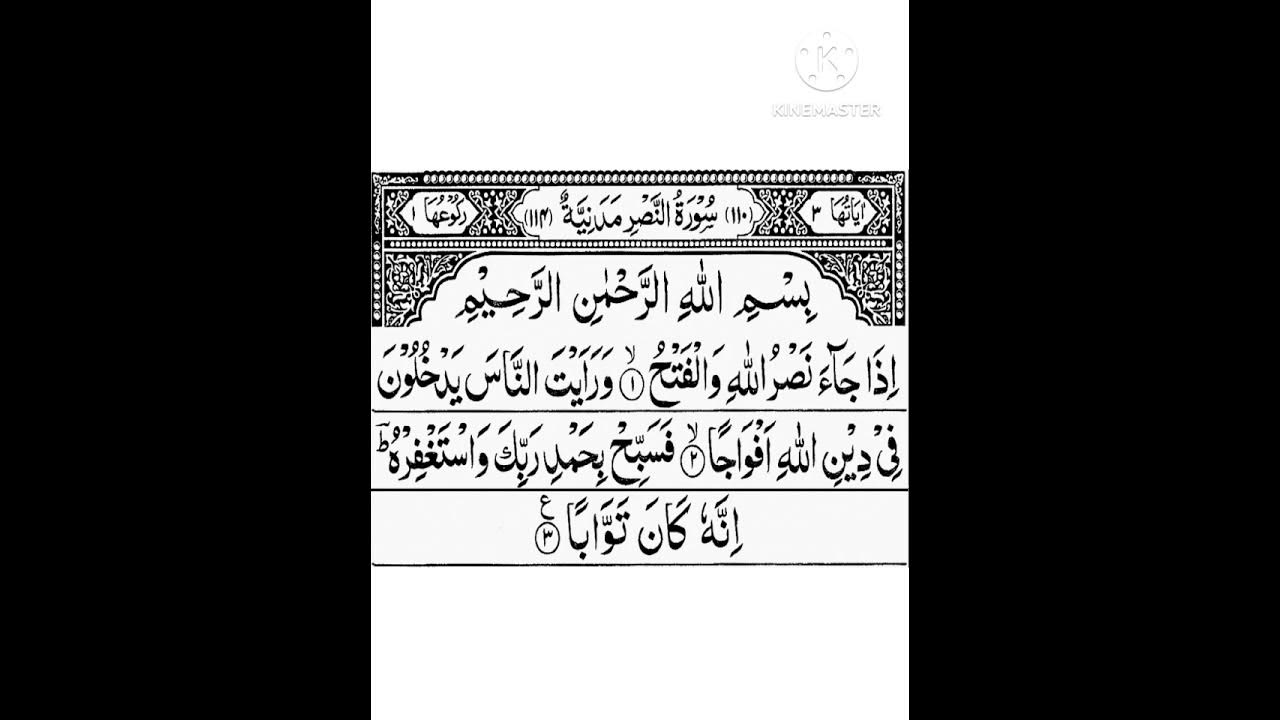 KINEMASTER
اٰيَاتُهَا ٣ (١١٠) سُوْرَةُ النَّصْرِ مَدَنِيَّةٌ (١١٤) رُكُوْعُهَا ١
بِسْمِ اللّٰهِ الرَّحْمٰنِ الرَّحِيْمِ
اِذَا جَآءَ نَصْرُ اللّٰهِ وَالْفَتْحُ ۙ﴿١﴾ وَرَاَيْتَ النَّاسَ يَدْخُلُوْنَ
فِيْ دِيْنِ اللّٰهِ اَفْوَاجًا ۙ﴿٢﴾ فَسَبِّحْ بِحَمْدِ رَبِّكَ وَاسْتَغْفِرْهُ ؕ
اِنَّهٗ كَانَ تَوَّابًا ﴿٣﴾ ع